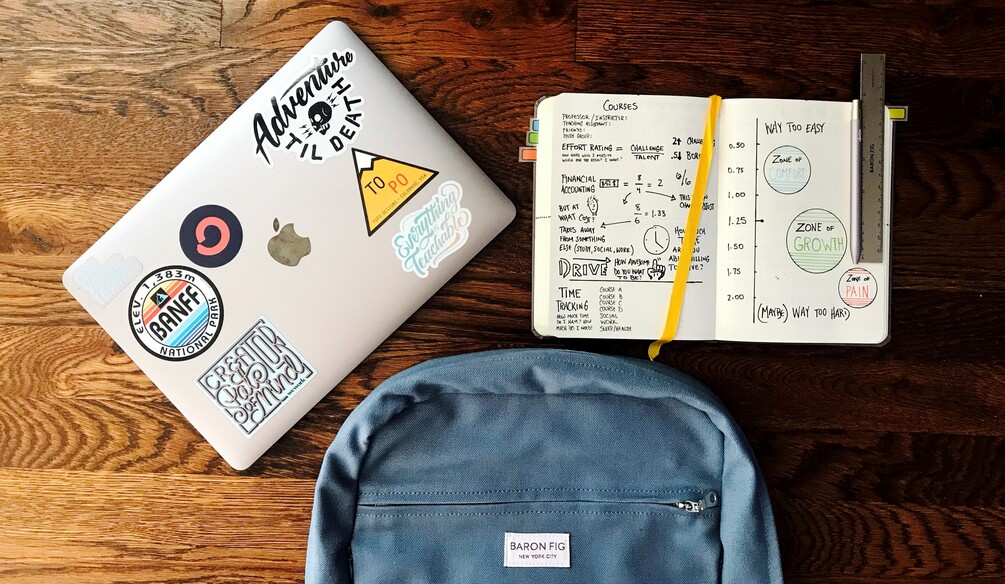 Adventure
TIL DEATH
TO PO
Everything
Teachable
ELEV. 1,383m
BANFF
NATIONAL PARK
CREATOR
State
of Mind
COURSES
PROFESSOR / INSTRUCTOR:
TEACHING ASSISTANT:
FRIENDS:
STUDY GROUP:
EFFORT RATING = CHALLENGE
TALENT
FINANCIAL
ACCOUNTING
= 8
4 = 2
BUT AT
WHAT COST?
8
6 = 1.33
TAKES AWAY
FROM SOMETHING
ELSE (STUDY, SOCIAL, WORK)
DRIVE
HOW AWESOME
DO YOU WANT
TO BE?
TIME
TRACKING
HOW MUCH TIME
DO I HAVE? HOW
MUCH DO I NEED?
COURSE A
COURSE B
COURSE C
COURSE D
SOCIAL
WORK
SLEEP/HEALTH
6/6
WAY TOO EASY
0.50
0.75
1.00
1.25
1.50
1.75
2.00
ZONE OF
COMFORT
ZONE OF
GROWTH
ZONE OF
PAIN
(MAYBE) WAY TOO HARD
BARON FIG
BARON FIG
NEW YORK CITY